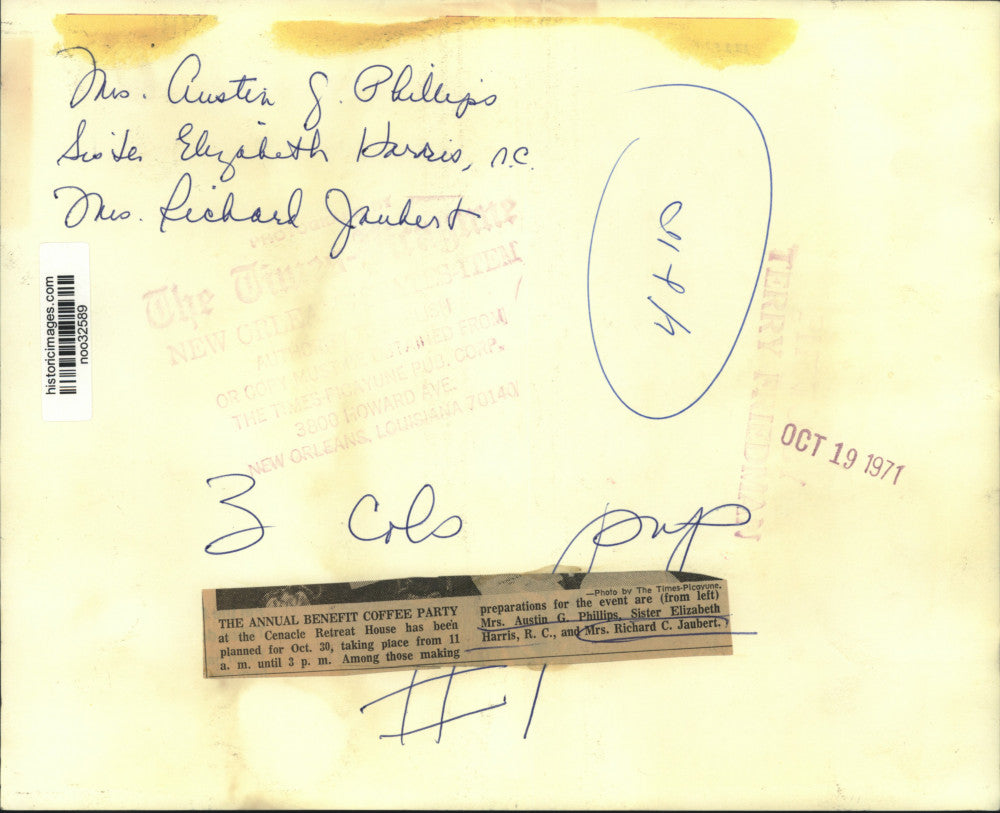 Mrs. Austin J. Phillips
Sister Elizabeth Harris, r.c.
Mrs. Richard Jaubert
The Times-Picayune
NEW ORLEANS STATES-ITEM
OR COPY MUST BE OBTAINED FROM
THE TIMES-PICAYUNE PUB. CORP.
3800 HOWARD AVE.
NEW ORLEANS, LOUISIANA 70140
historicimages.com
noo32589
TERRY FRIEDMAN
OCT 19 1971
3 Cols
—Photo by The Times-Picayune.
THE ANNUAL BENEFIT COFFEE PARTY
at the Cenacle Retreat House has been
planned for Oct. 30, taking place from 11
a. m. until 3 p. m. Among those making
preparations for the event are (from left)
Mrs. Austin G. Phillips, Sister Elizabeth
Harris, R. C., and Mrs. Richard C. Jaubert.
#1